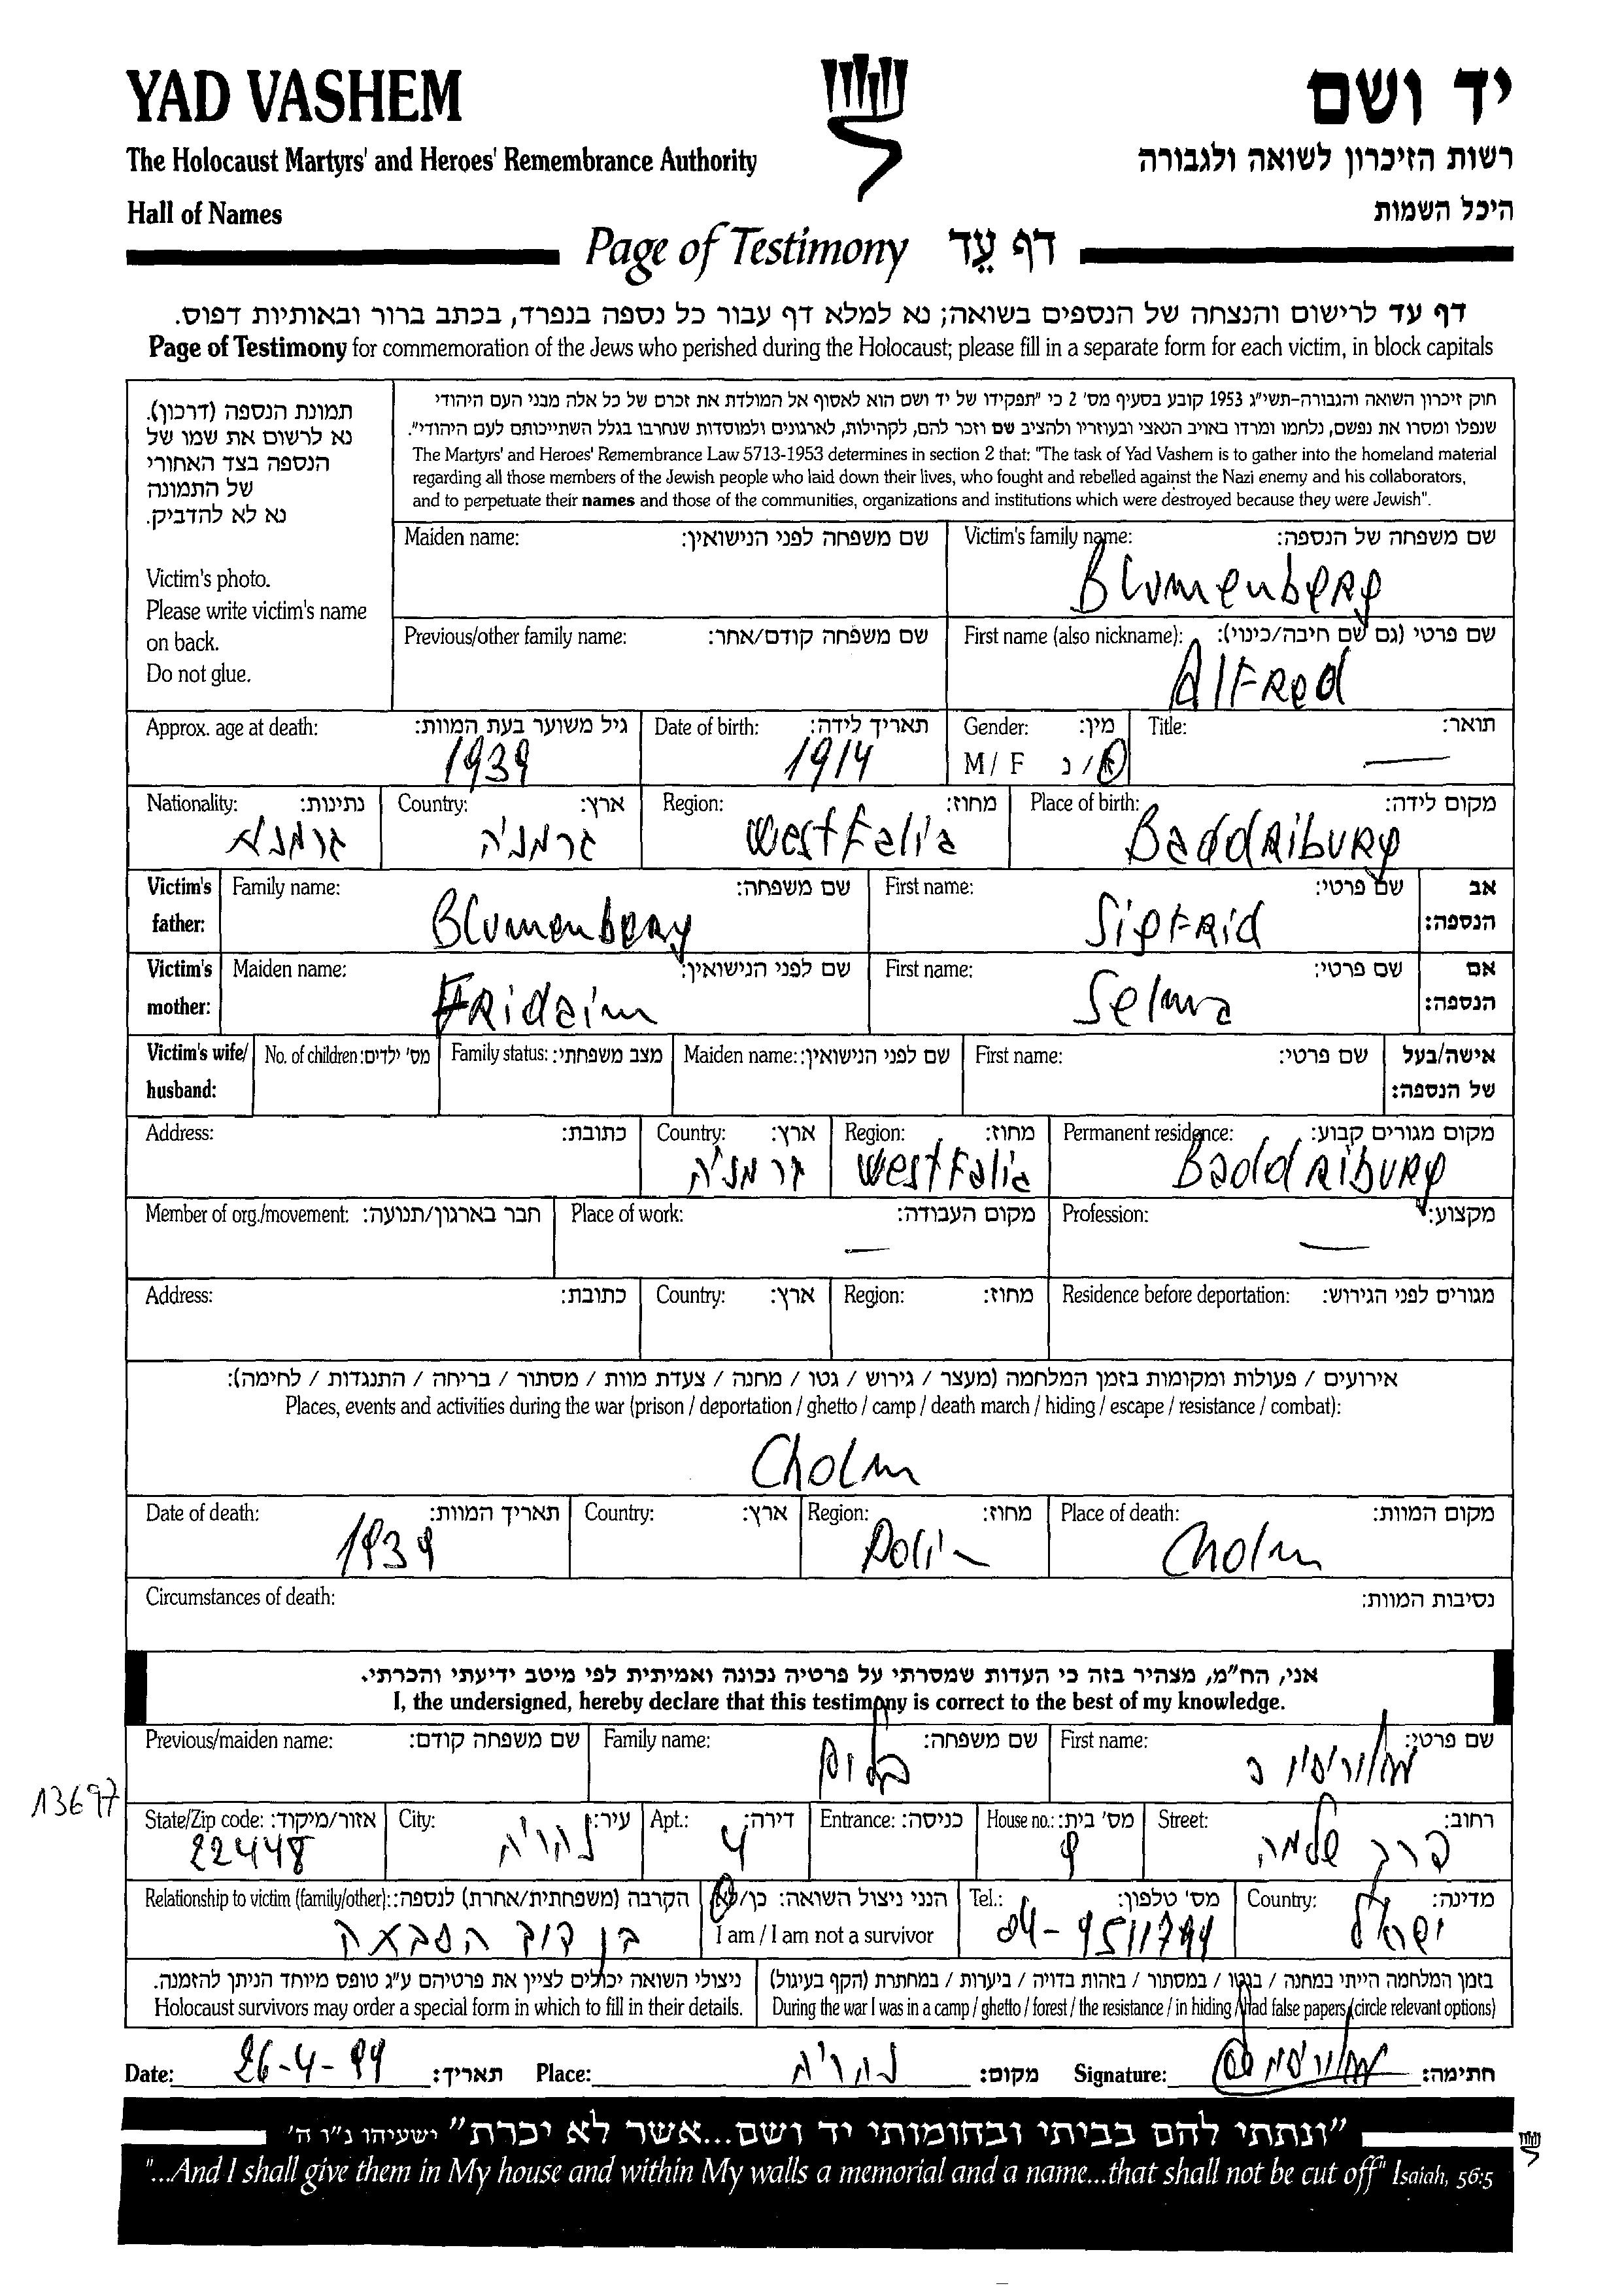 YAD VASHEM
יד ושם
The Holocaust Martyrs' and Heroes' Remembrance Authority
רשות הזיכרון לשואה ולגבורה
Hall of Names
היכל השמות
Page of Testimony דף עֵד
דף עד לרישום והנצחה של הנספים בשואה; נא למלא דף עבור כל נספה בנפרד, בכתב ברור ובאותיות דפוס.
Page of Testimony for commemoration of the Jews who perished during the Holocaust; please fill in a separate form for each victim, in block capitals
תמונת הנספה (דרכון).
נא לרשום את שמו של
הנספה בצד האחורי
של התמונה
נא לא להדביק.
Victim's photo.
Please write victim's name
on back.
Do not glue.
חוק זיכרון השואה והגבורה-תשי"ג 1953 קובע בסעיף מס' 2 כי "תפקידו של יד ושם הוא לאסוף אל המולדת את זכרם של כל אלה מבני העם היהודי
שנפלו ומסרו את נפשם, נלחמו ומרדו באויב הנאצי ובעוזריו ולהציב שם וזכר להם, לקהילות, לארגונים ולמוסדות שנחרבו בגלל השתייכותם לעם היהודי".
The Martyrs' and Heroes' Remembrance Law 5713-1953 determines in section 2 that: "The task of Yad Vashem is to gather into the homeland material
regarding all those members of the Jewish people who laid down their lives, who fought and rebelled against the Nazi enemy and his collaborators,
and to perpetuate their names and those of the communities, organizations and institutions which were destroyed because they were Jewish".
Maiden name: שם משפחה לפני הנישואין:
Victim's family name: שם משפחה של הנספה:
Blumenberg
Previous/other family name: שם משפחה קודם/אחר:
First name (also nickname): שם פרטי (גם שם חיבה/כינוי):
AlFRed
Approx. age at death: גיל משוער בעת המוות:
1939
Date of birth: תאריך לידה:
1914
Gender: מין:
M / F ז / נ
Title: תואר:
—
Nationality: נתינות:
גרמנית
Country: ארץ:
גרמניה
Region: מחוז:
WestFalia
Place of birth: מקום לידה:
BaddRiburg
Victim's father:
Family name: שם משפחה:
Blumenberg
First name: שם פרטי:
SigFRid
אב הנספה:
Victim's mother:
Maiden name: שם לפני הנישואין:
FRidaim
First name: שם פרטי:
Selma
אם הנספה:
Victim's wife/ husband:
No. of children: מס' ילדים:
Family status: מצב משפחתי:
Maiden name: שם לפני הנישואין:
First name: שם פרטי:
אישה/בעל של הנספה:
Address: כתובת:
Country: ארץ:
גרמניה
Region: מחוז:
WestFalia
Permanent residence: מקום מגורים קבוע:
BaddRiburg
Member of org./movement: חבר בארגון/תנועה:
Place of work: מקום העבודה:
—
Profession: מקצוע:
—
Address: כתובת:
Country: ארץ:
Region: מחוז:
Residence before deportation: מגורים לפני הגירוש:
אירועים / פעולות ומקומות בזמן המלחמה (מעצר / גירוש / גטו / מחנה / צעדת מוות / מסתור / בריחה / התנגדות / לחימה):
Places, events and activities during the war (prison / deportation / ghetto / camp / death march / hiding / escape / resistance / combat):
Cholm
Date of death: תאריך המוות:
1939
Country: ארץ:
Region: מחוז:
Polin
Place of death: מקום המוות:
Cholm
Circumstances of death: נסיבות המוות:
אני, הח"מ, מצהיר בזה כי העדות שמסרתי על פרטיה נכונה ואמיתית לפי מיטב ידיעתי והכרתי.
I, the undersigned, hereby declare that this testimony is correct to the best of my knowledge.
Previous/maiden name: שם משפחה קודם:
Family name: שם משפחה:
בלום
First name: שם פרטי:
13697
State/Zip code: אזור/מיקוד:
22448
City: עיר:
נהריה
Apt.: דירה:
4
Entrance: כניסה:
House no.: מס' בית:
9
Street: רחוב:
שלמה
Relationship to victim (family/other): הקרבה (משפחתית/אחרת) לנספה:
בן דוד הסבתא
הנני ניצול השואה: כן/לא
I am / I am not a survivor
Tel.: מס' טלפון:
04-9511744
Country: מדינה:
ישראל
ניצולי השואה יכולים לציין את פרטיהם ע"ג טופס מיוחד הניתן להזמנה.
Holocaust survivors may order a special form in which to fill in their details.
בזמן המלחמה הייתי במחנה / בגטו / במסתור / בזהות בדויה / ביערות / במחתרת (הקף בעיגול)
During the war I was in a camp / ghetto / forest / the resistance / in hiding / had false papers (circle relevant options)
Date: 26-4-99 תאריך:
Place: נהריה מקום:
Signature: חתימה:
"ונתתי להם בביתי ובחומותי יד ושם...אשר לא יכרת" ישעיהו נ"ו ה'
"...And I shall give them in My house and within My walls a memorial and a name...that shall not be cut off" Isaiah, 56:5